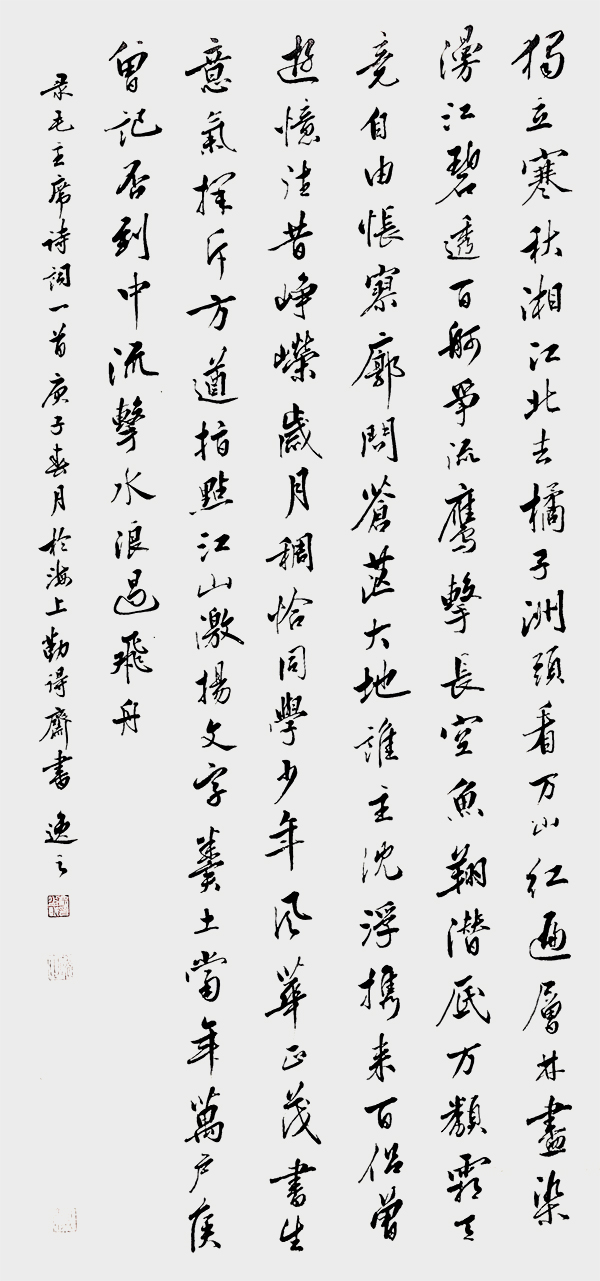 獨立寒秋湘江北去橘子洲頭看万山紅遍層林盡染
漫江碧透百舸爭流鷹擊長空魚翔淺底万類霜天
竞自由悵寥廓問蒼茫大地誰主沈浮携来百侣曾
遊憶往昔崢嶸歲月稠恰同學少年风華正茂書生
意氣揮斥方遒指點江山激揚文字糞土當年萬户侯
曾記否到中流擊水浪遏飛舟
录毛主席詩詞一首庚子春月於海上勤得齋書逸之